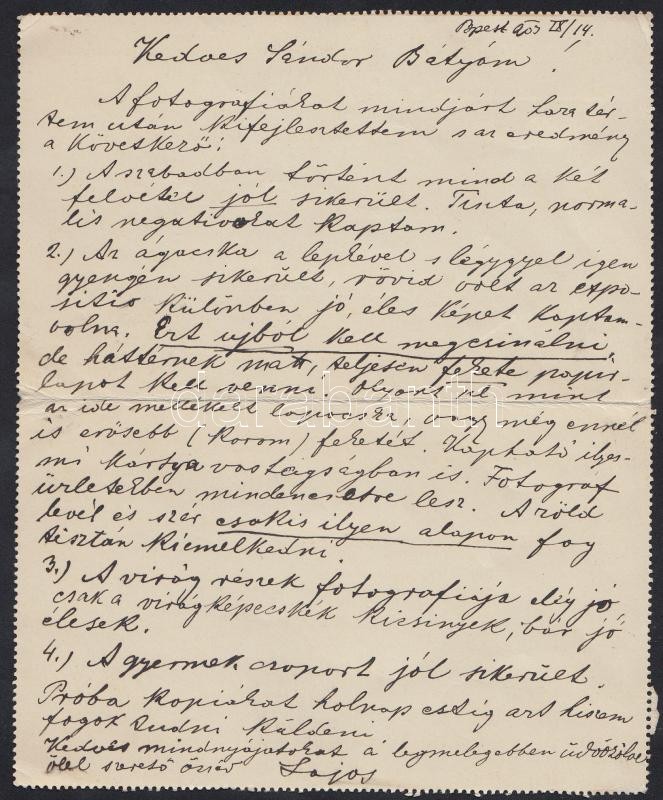 Bpest 903 IX/14.
Kedves Sándor Bátyám!
A fotografiákat mindjárt haza tér-
tem után kifejlesztettem s az eredmény
a következő:
1.) A szabadban történt mind a két
felvétel jól sikerült. Tiszta, norma-
lis negativokat kaptam.
2.) Az ágacska a lepkével s légygyel igen
gyengén sikerült, rövid volt az expo-
sitio különben jó, éles képet kaptam
volna. Ezt ujból kell megcsinálni,
de háttérnek matt, teljesen fekete papir-
lapot kell venni. Olyant mint
az ide mellékelt lapocska, vagy még ennél
is erősebb (korom) feketét. Kapható ilyes-
mi kártya vastagságban is. Fotograf
üzletekben mindenesetre lesz. A zöld
levél és szár csakis ilyen alapon fog
tisztán kiemelkedni.
3.) A virág részek fotografiája elég jó
csak a virágképecskék kicsinyek, bár jó
élesek.
4.) A gyermek csoport jól sikerült.
Próba kopiákat holnap estig azt hiszem
fogok tudni küldeni
Kedves mindnyájatokat a legmelegebben üdvözölve
ölel szerető öcséd Lajos
darabanth